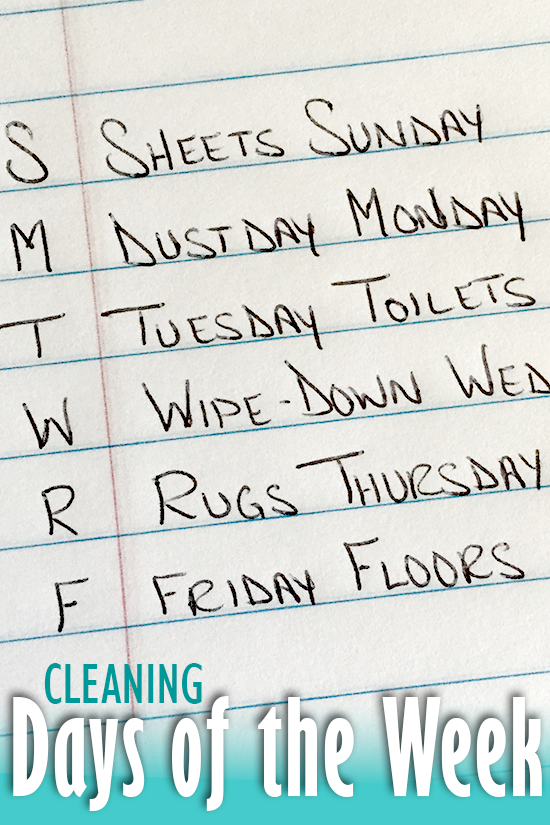 S SHEETS SUNDAY
M DUSTDAY MONDAY
T TUESDAY TOILETS
W WIPE-DOWN WED
R RUGS THURSDAY
F FRIDAY FLOORS
CLEANING
Days of the Week